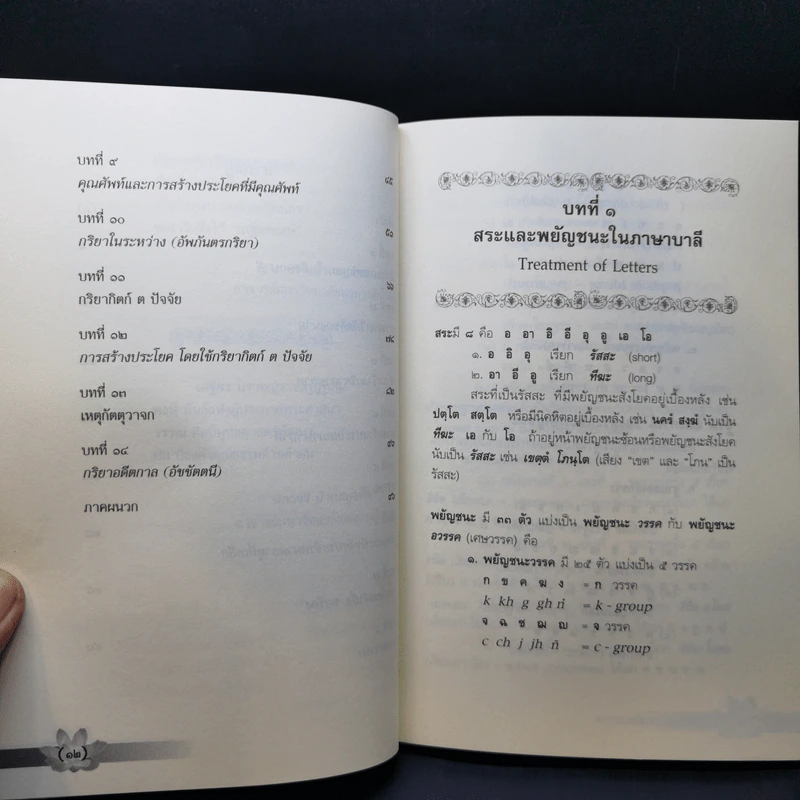 บทที่ ๙
คุณศัพท์และการสร้างประโยคที่มีคุณศัพท์ ๔๕
บทที่ ๑๐
กริยาในระหว่าง (อัพภันตรกริยา) ๕๑
บทที่ ๑๑
กริยากิตก์ ต ปัจจัย ๖๖
บทที่ ๑๒
การสร้างประโยค โดยใช้กริยากิตก์ ต ปัจจัย ๗๔
บทที่ ๑๓
เหตุกัตตุวาจก ๘๒
บทที่ ๑๔
กริยาอดีตกาล (อัชชัตตนี)
ภาคผนวก
(๑๒)
บทที่ ๑
สระและพยัญชนะในภาษาบาลี
Treatment of Letters
สระมี ๘ คือ อ อา อิ อี อุ อู เอ โอ
๑. อ อิ อุ เรียก รัสสะ (short)
๒. อา อี อู เรียก ทีฆะ (long)
สระที่เป็นรัสสะ ที่มีพยัญชนะสังโยคอยู่เบื้องหลัง เช่น
ปตฺโต สตฺโต หรือมีนิคหิตอยู่เบื้องหลัง เช่น นครํ สงฺฆํ นับเป็น
ทีฆะ เอ กับ โอ ถ้าอยู่หน้าพยัญชนะซ้อนหรือพยัญชนะสังโยค
นับเป็น รัสสะ เช่น เขตฺตํ โภนฺโต (เสียง "เขต" และ "โภน" เป็น
รัสสะ)
พยัญชนะ มี ๓๓ ตัว แบ่งเป็น พยัญชนะ วรรค กับ พยัญชนะ
อวรรค (เศษวรรค) คือ
๑. พยัญชนะวรรค มี ๒๕ ตัว แบ่งเป็น ๕ วรรค
ก ข ค ฆ ง = ก วรรค
k kh g gh ṅ = k - group
จ ฉ ช ฌ ญ = จ วรรค
c ch j jh ñ = c - group